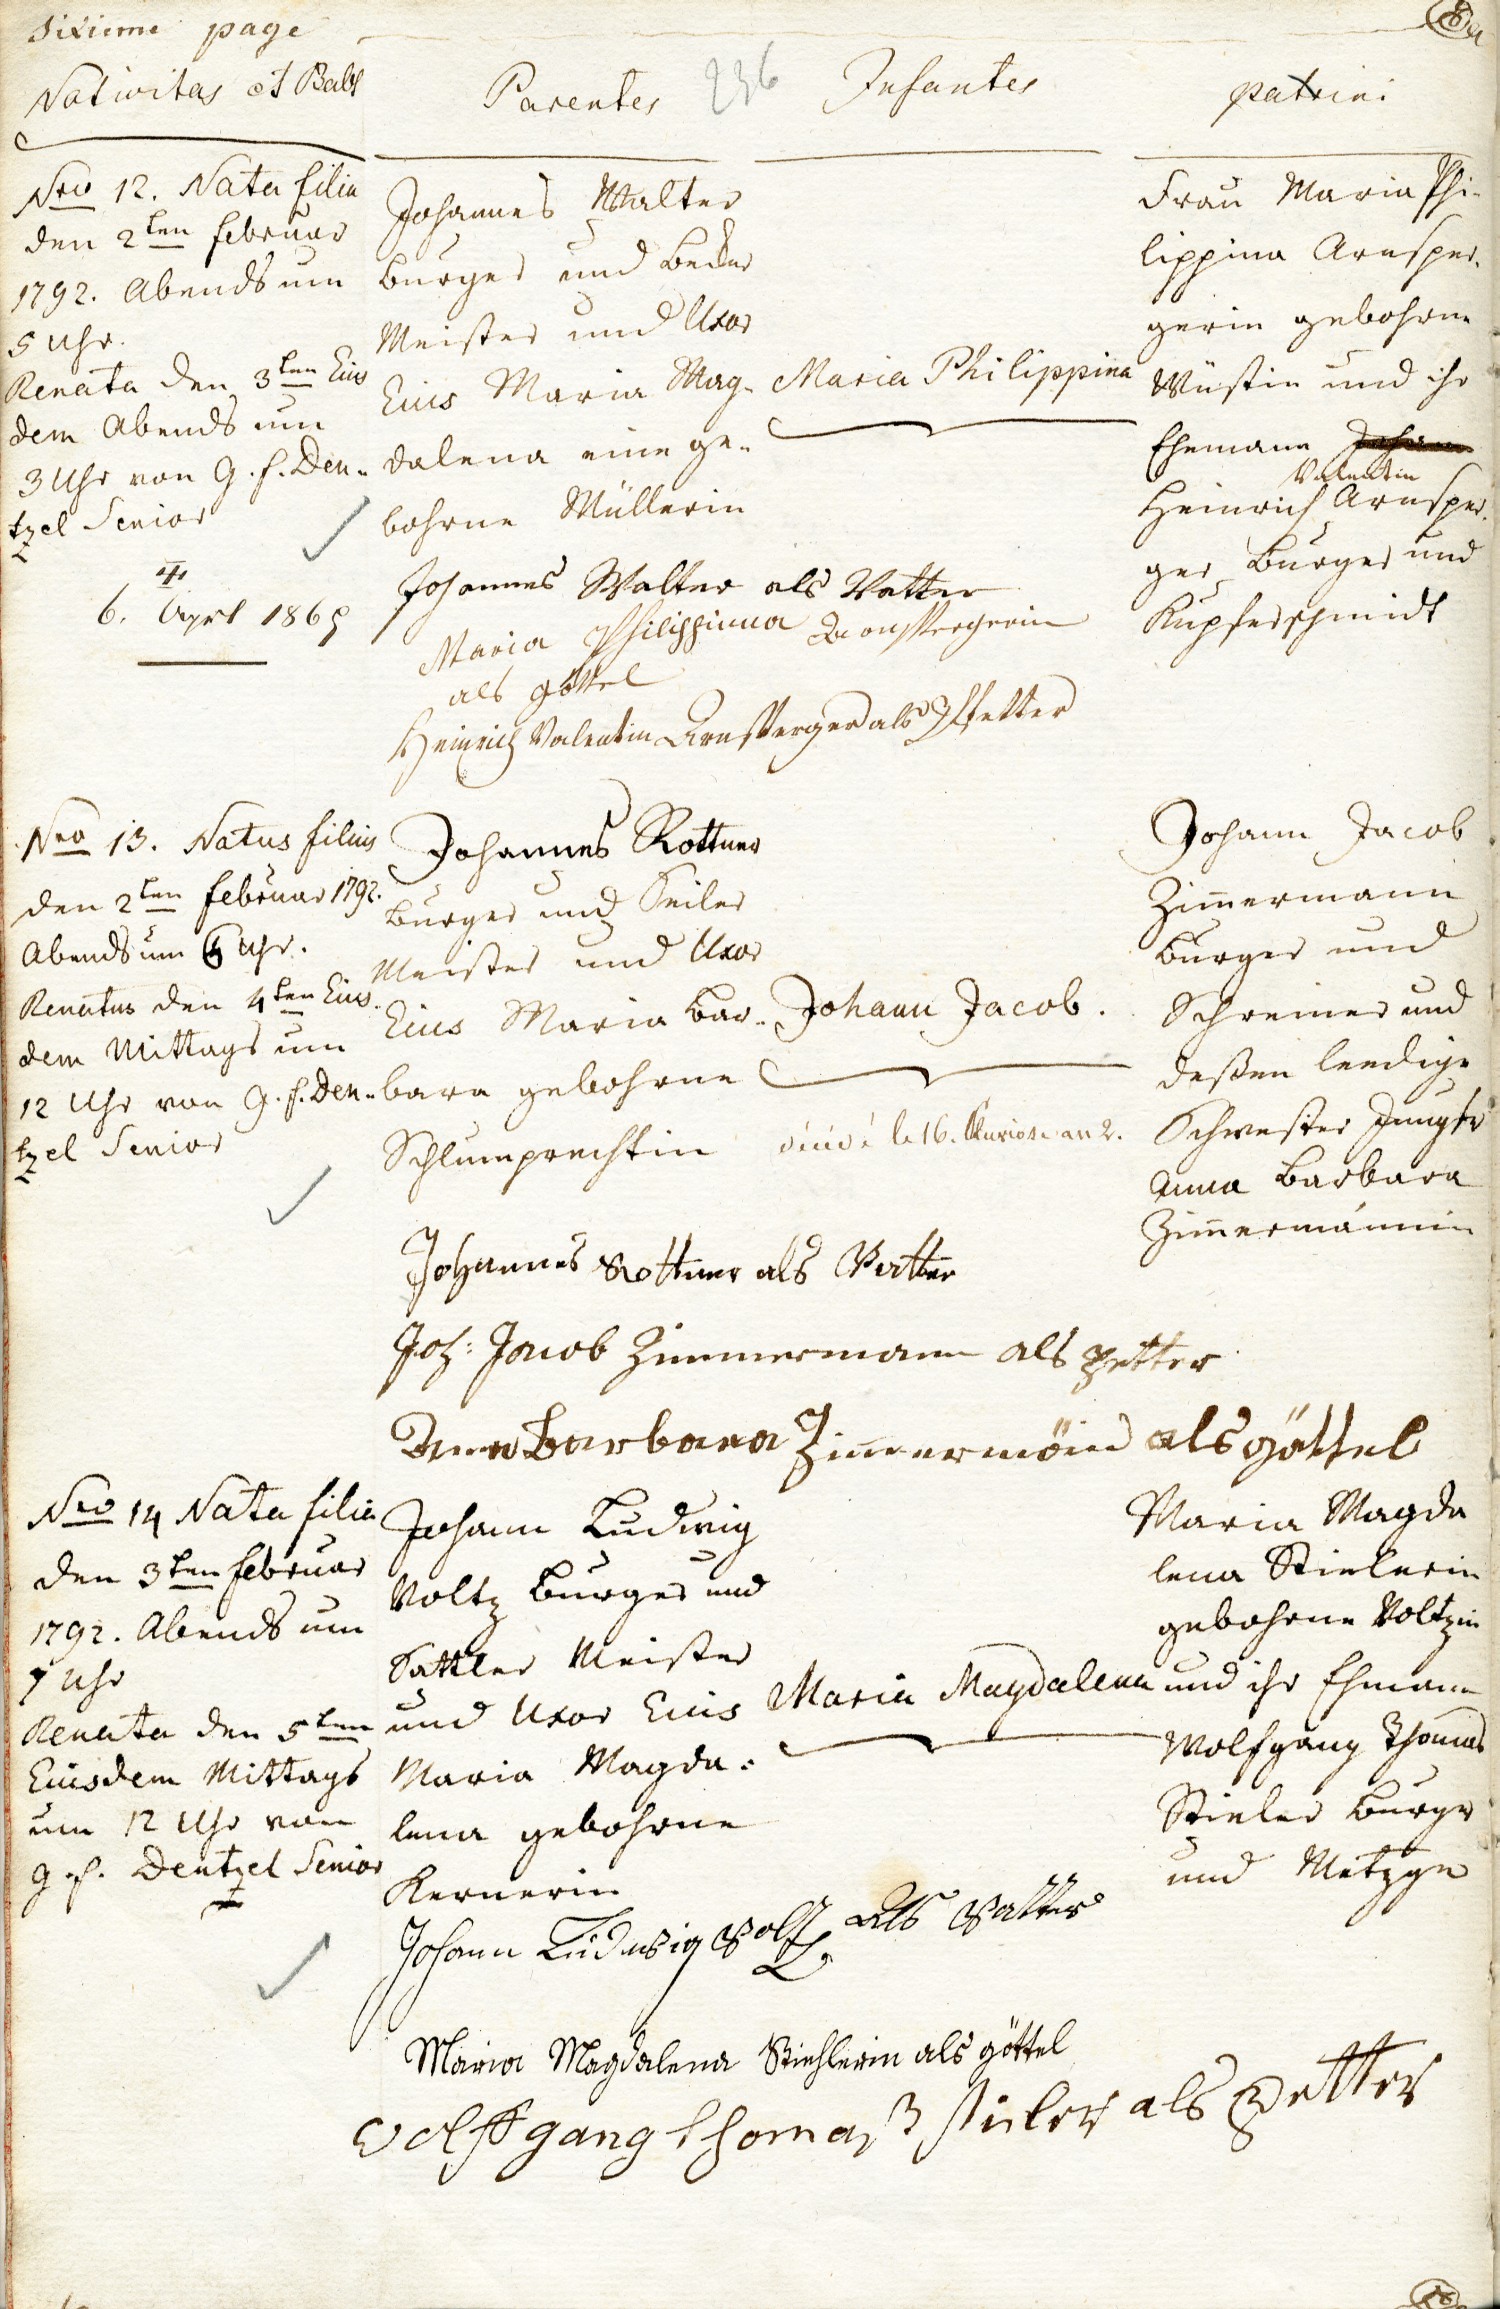 Sixieme page
Nativitas et Babt
Parentes
236
Infantes
patrini
Nro 12. Nata filia
den 2ten februar
1792. Abends um
5 Uhr.
Renata den 3ten Eius
dem Abends um
3 Uhr von G. f. Den-
tzel Senior
6. Aprl 1865
Johannes Walter
burger und becker
Meister und Uxor
Eius Maria Mag-
dalena eine ge-
bohrne Müllerin
Maria Philippina
Frau Maria Phi-
lippina Arnsper-
gerin gebohrne
Wüstin und ihr
Ehemann
Valentin
Heinrich Arnsper-
ger burger und
Kupferschmidt
Johannes Walter als Vatter
Maria Philippina Arnspergerin
als göttel
Heinrich Valentin Arnsperger als Pfetter
Nro 13. Natus filius
den 2ten februar 1792.
Abends um 6 Uhr.
Renatus den 4ten Eius-
dem Mittags um
12 Uhr von G. f. Den-
tzel Senior
Johannes Rottner
burger und Seiler
Meister und Uxor
Eius Maria bar-
bara gebohrne
Schlumprechtin
Johann Jacob.
le 16. an 2.
Johann Jacob
Zimmermann
burger und
Schreiner und
deßen leedige
Schwester Jungfr
Anna barbara
Zimmermännin
Johannes Rottner als Vatter
Joh: Jacob Zimmermann als petter
Anna Barbara Zimermänin als göttel
Nro 14 Nata filia
den 3ten februar
1792. Abends um
7 Uhr
Renata den 5ten
Eiusdem Mittags
um 12 Uhr von
G. f. Dentzel Senior
Johann Ludwig
Voltz burger und
Sattler Meister
und Uxor Eius
Maria Magda-
lena gebohrne
Kernerin
Maria Magdalena
Maria Magda
lena Stielerin
gebohrne Voltzin
und ihr Ehmann
Wolfgang Thomas
Stieler burger
und Metzger
Johann Ludwig Voltz als Vatter
Maria Magdalena Stiehlerin als göttel
Wolffgang thomas stieler als petter